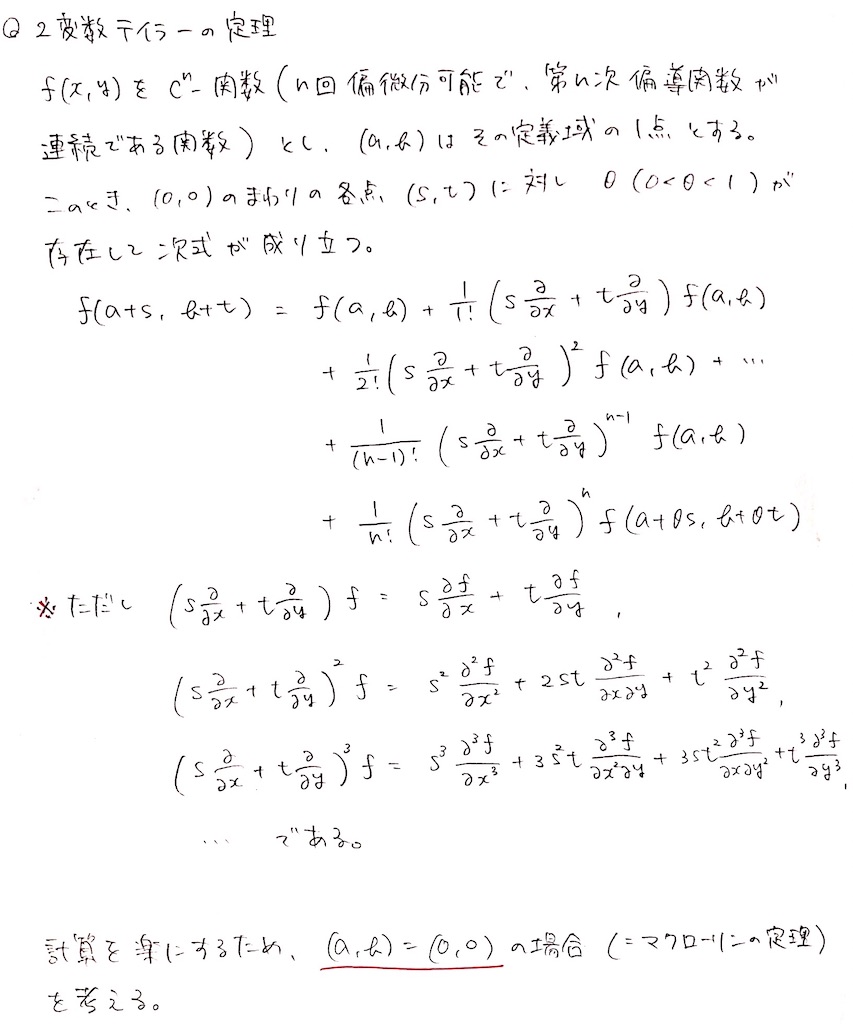 Q 2変数テイラーの定理
f(x,y) を Cⁿ-関数 (n回偏微分可能で、第n次偏導関数が
連続である関数) とし、(a,b) はその定義域の1点とする。
このとき、(0,0) のまわりの各点 (s,t) に対し θ (0<θ<1) が
存在して次式が成り立つ。
f(a+s, b+t) = f(a,b) + 1/1! (s ∂/∂x + t ∂/∂y) f(a,b)
+ 1/2! (s ∂/∂x + t ∂/∂y)² f(a,b) + …
+ 1/(n-1)! (s ∂/∂x + t ∂/∂y)ⁿ⁻¹ f(a,b)
+ 1/n! (s ∂/∂x + t ∂/∂y)ⁿ f(a+θs, b+θt)
※ ただし (s ∂/∂x + t ∂/∂y) f = s ∂f/∂x + t ∂f/∂y ,
(s ∂/∂x + t ∂/∂y)² f = s² ∂²f/∂x² + 2st ∂²f/∂x∂y + t² ∂²f/∂y² ,
(s ∂/∂x + t ∂/∂y)³ f = s³ ∂³f/∂x³ + 3s²t ∂³f/∂x²∂y + 3st² ∂³f/∂x∂y² + t³ ∂³f/∂y³ ,
… である。
計算を楽にするため、(a,b) = (0,0) の場合 (=マクローリンの定理)
を考える。